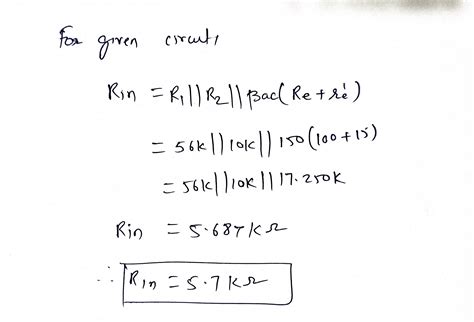 For given circuit,
Rin = R1||R2||βac(Re + re')
= 56K||10K||150(100+15)
= 56K||10K||17.250K
Rin = 5.687KΩ
∴ Rin = 5.7KΩ